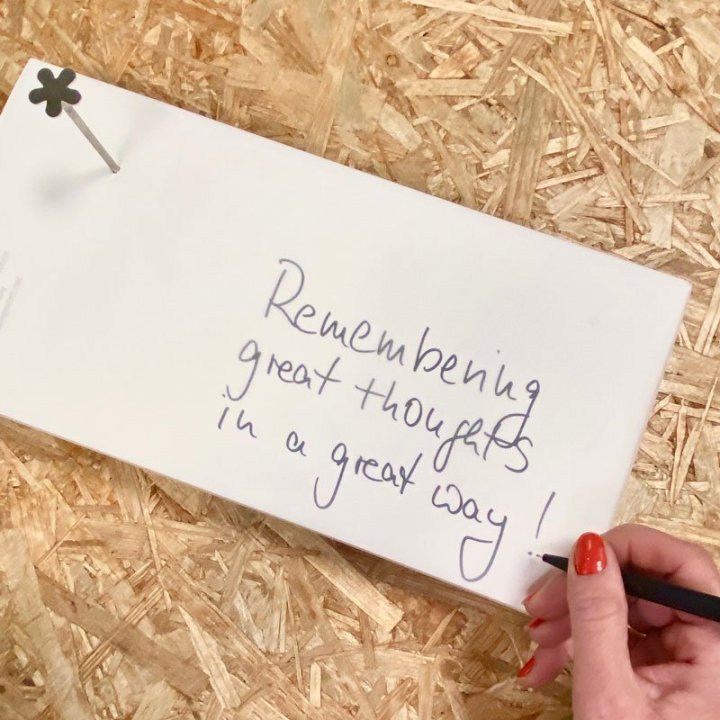 Remembering
great thoughts
in a great way!